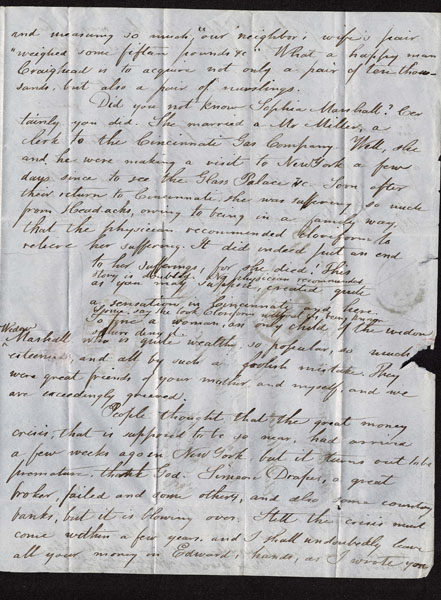 and measuring so much, "our neighbor's wife's pair
"weighed some fifteen pounds &c" What a happy man
Craighead is to acquire not only a pair of ten thou-
sands, but also a pair of nurslings.
Did you not know Sophia Marshall? Cer
tainly you did. She married a Mr Miller, a
clerk to the Cincinnati Gas Company. Well, she
and he were making a visit to New York a few
days since to see the Glass Palace &c. Soon after
their return to Cincinnati she was suffering so much
from Headache, owing to being in a family way,
that the physician recommended Cloroform to
relieve her suffering. It did indeed put an end
to her sufferings, for she died! This
story is doubtful. No physician recommended
as you may suppose, created quite
a sensation in Cincinnati and here.
Some say she took Cloroform without
So fine a woman, an only child of the widow
others deny it
Widow
Marshall who is quite wealthy, so popular, so much
esteemed, and all by such a foolish mistake. They
were great friends of your mother and myself and we
are exceedingly grieved.
People thought that the great money
crisis, that is supposed to be so near, had arrived
a few weeks ago in New York but it turns out to be
premature thank God. Simeon Draper, a great
broker, failed and some others, and also some country
banks, but it is blowing over. Still the crisis must
come within a few years, and I shall undoubtedly leave
all your money in Edward's hands, as I wrote you